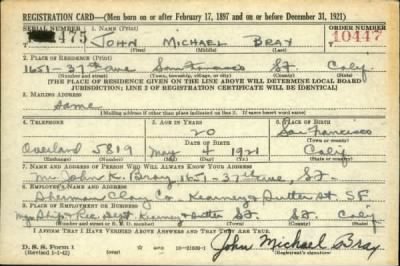 REGISTRATION CARD—(Men born on or after February 17, 1897 and on or before December 31, 1921)
SERIAL NUMBER 1. NAME (Print) ORDER NUMBER
475 John Michael Bray 10447
(First) (Middle) (Last)
2. PLACE OF RESIDENCE (Print)
1651 - 37th Ave San Francisco S.F. Calif
(Number and street) (Town, township, village, or city) (County) (State)
[THE PLACE OF RESIDENCE GIVEN ON THE LINE ABOVE WILL DETERMINE LOCAL BOARD
JURISDICTION; LINE 2 OF REGISTRATION CERTIFICATE WILL BE IDENTICAL]
3. MAILING ADDRESS
Same
[Mailing address if other than place indicated on line 2. If same insert word same]
4. TELEPHONE 5. AGE IN YEARS 6. PLACE OF BIRTH
20 San Francisco
DATE OF BIRTH (Town or county)
Overland 5819 May 4 1921 Calif
(Exchange) (Number) (Mo.) (Day) (Yr.) (State or country)
7. NAME AND ADDRESS OF PERSON WHO WILL ALWAYS KNOW YOUR ADDRESS
Mr. John K. Bray, 1651 - 37th Ave, S.F.
8. EMPLOYER'S NAME AND ADDRESS
Sherman Clay Co. Kearney & Sutter St. SF
9. PLACE OF EMPLOYMENT OR BUSINESS
Ship & Rec. Dept. Kearney & Sutter St. S.F. Calif
(Number and street or R. F. D. number) (Town) (County) (State)
I AFFIRM THAT I HAVE VERIFIED ABOVE ANSWERS AND THAT THEY ARE TRUE.
D. S. S. Form 1
(Revised 1-1-42) GPO 16-21630-1
John Michael Bray
(Registrant's signature)